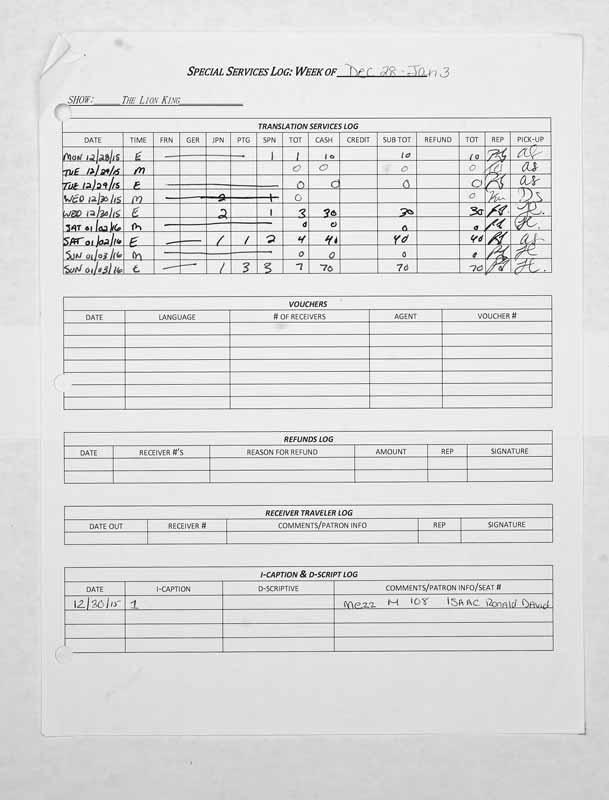 SPECIAL SERVICES LOG: WEEK OF Dec 28 - Jan 3
SHOW: THE LION KING
TRANSLATION SERVICES LOG
DATE TIME FRN GER JPN PTG SPN TOT CASH CREDIT SUB TOT REFUND TOT REP PICK-UP
MON 12/28/15 E 1 1 10 10 10
TUE 12/29/15 M 0 0 0 0 as
TUE 12/29/15 E 0 0 0 0 as
WED 12/30/15 M 2 1 0 0 Ds
WED 12/30/15 E 2 1 3 30 30 30
SAT 01/02/16 M 0 0 0 0
SAT 01/02/16 E 1 1 2 4 40 40 40
SUN 01/03/16 M 0 0 0 0
SUN 01/03/16 E 1 3 3 7 70 70 70
VOUCHERS
DATE LANGUAGE # OF RECEIVERS AGENT VOUCHER #
REFUNDS LOG
DATE RECEIVER #'S REASON FOR REFUND AMOUNT REP SIGNATURE
RECEIVER TRAVELER LOG
DATE OUT RECEIVER # COMMENTS/PATRON INFO REP SIGNATURE
I-CAPTION & D-SCRIPT LOG
DATE I-CAPTION D-SCRIPTIVE COMMENTS/PATRON INFO/SEAT #
12/30/15 1 Mezz M 108 ISAAC Ronald David